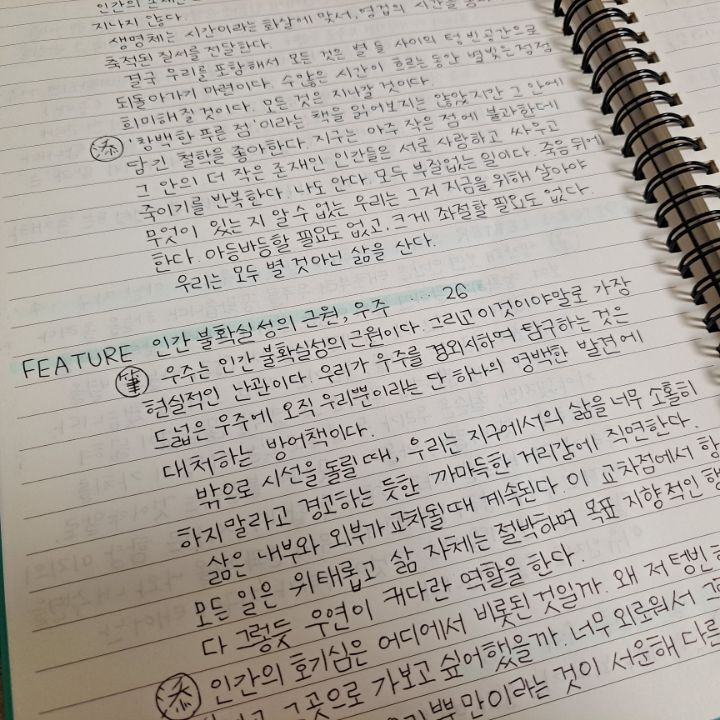 인간의
지나지 않다.
생명체는 시간이라는 화살에 맞서, 영겁의 시간을
축적된 질서를 전달한다.
결국 우리를 포함해서 모든 것은 별들 사이의 텅 빈 공간으로
되돌아가기 마련이다. 수많은 시간이 흐르는 동안 별빛은 점점
희미해질 것이다. 모든 것은 지나갈 것이다.
添 '창백한 푸른 점'이라는 책을 읽어보지는 않았지만 그 안에
담긴 철학을 좋아한다. 지구는 아주 작은 점에 불과한데
그 안의 더 작은 존재인 인간들은 서로 사랑하고 싸우고
죽이기를 반복한다. 나도 안다. 모두 부질없는 일이다. 죽음 뒤에
무엇이 있는지 알 수 없는 우리는 그저 지금을 위해 살아야
한다. 아등바등할 필요도 없고, 크게 좌절할 필요도 없다.
우리는 모두 별 것 아닌 삶을 산다.
FEATURE 인간 불확실성의 근원, 우주 .... 26
筆 우주는 인간 불확실성의 근원이다. 그리고 이것이야말로 가장
현실적인 난관이다. 우리가 우주를 경외시하며 탐구하는 것은
드넓은 우주에 오직 우리뿐이라는 단 하나의 명백한 발견에
대처하는 방어책이다.
밖으로 시선을 돌릴 때, 우리는 지구에서의 삶을 너무 소홀히
하지 말라고 경고하는 듯한 까마득한 거리감에 직면한다.
삶은 내부와 외부가 교차될 때 계속된다. 이 교차점에서 항
모든 일은 위태롭고 삶 자체는 절박하며 목표 지향적인
다 그렇듯 우연이 커다란 역할을 한다.
添 인간의 호기심은 어디에서 비롯된 것일까. 왜 저 텅 빈
그곳으로 가보고 싶어했을까. 너무 외로워서
뿐만이라는 것이 서운해 다른